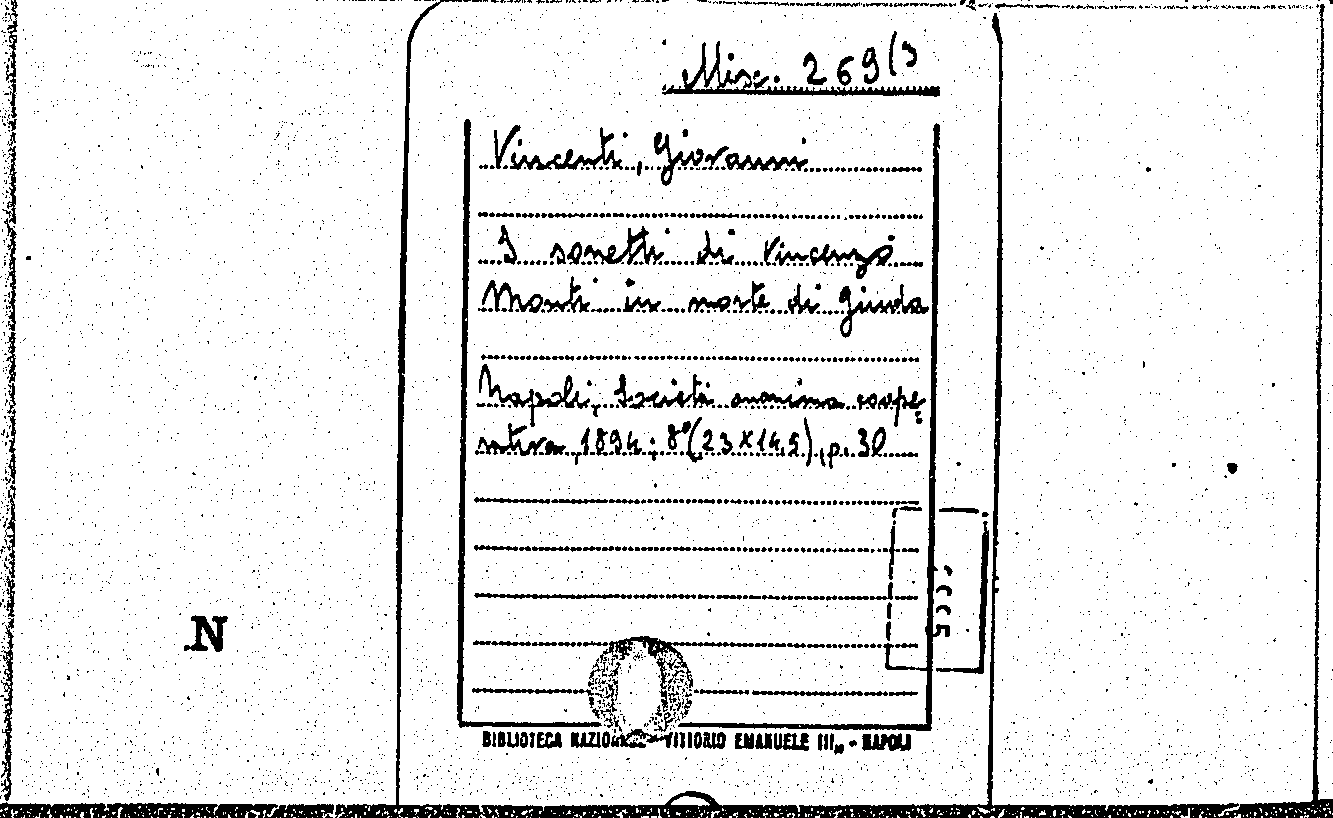 Misc. 269(3
Vincenti, Giovanni
I sonetti di Vincenzo
Monti in morte di Giuda
Napoli, Società anonima coope-
rativa, 1894; 8°(23x14,5), p. 30
N
BIBLIOTECA NAZIONALE - VITTORIO EMANUELE III„ - NAPOLI